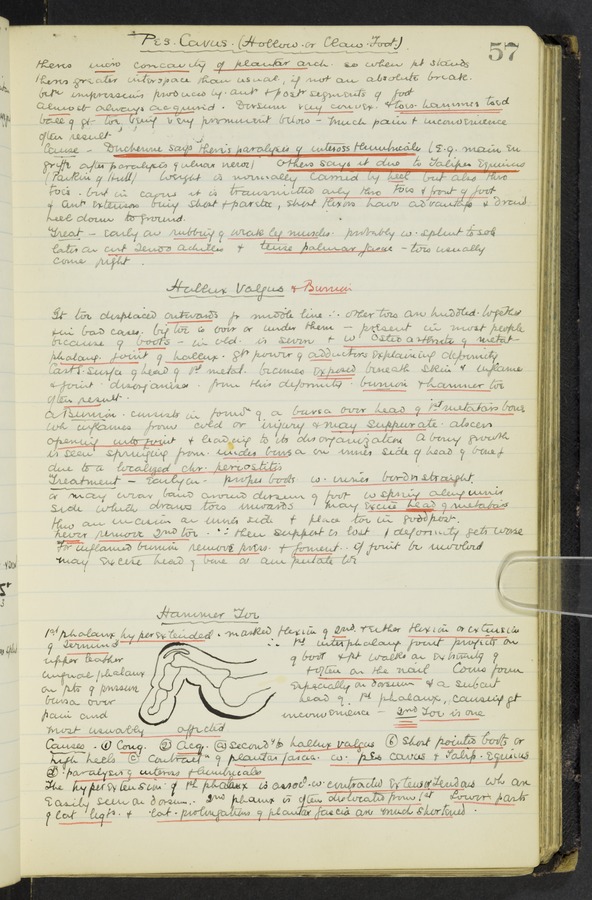 57
Pes Cavus. (Hollow or Claw Foot)
theres undue concavity of plantar arch. so when pt stands
theres greater interspace than usual, if not an absolute break.
betn impressions produced by ant & post segments of foot
almost always acquired. Dorsum very convex. & toes hammer toed
ball of gt toe being very prominent below - much pain & inconvenience
often result.
Cause - Duchenne says theres paralysis of inteross & lumbricals (E.g. main en
griffe after paralysis of ulnar nerve) Others says it due to Talipes Equinus
(Parkin of Hull) Weight is normally carried by heel but also thro
toes. but in cavus it is transmitted only thro toes & front of foot
& ant extensors being short & paretic, short flexors have advantage & draw
heel down to ground.
Treat - early on rubbing of weak leg muscles. probably w. splint to sole
later on cut Tendo achilles & tense palmar fasciae - toes usually
come right.
Hallux Valgus & Bunion
Gt toe displaced outwards fr middle line ∴ other toes are huddled together
& in bad cases. big toe is over or under them - present in most people
because of boots - in old. is seven & w Osteo arthritis of metat-
phalang. joint of hallux. gt power of adductors explaining deformity
Cart. surface of head of 1st metat. becomes exposed beneath skin & inflames
& joint disorganises. from this deformity. bunion & hammer toe
often result.
a Bunion. consists in formn of a bursa over head of 1st metatars bone
wh inflames from cold or injury & may suppurate. abscess
opening into joint & leading to its disorganization A bony growth
is seen springing from under bursa on inner side of head of bone &
due to a localized chr. periostitis
Treatment - Early on - proper boots w. inner borders straight,
or may wear band around dorsum of foot w spring along inner
side which draws toes inwards may Excise head of metatars
thro an incision on inner side & place toe in good post.
never remove 2nd toe. ∵ then support is lost & deformity gets worse
For inflamed bunion remove press. & foment. if joint be involved
may excise head of bone or amputate toe
Hammer Toe
1st phalanx hyperextended. marked flexion of 2nd. & either flexion or extension
of terminal ∴ 1st interphalang joint projects on
upper leather of boot & pt walks on extremity of
ungual phalanx & often on the nail Corns form
on pts of pressure Especially on dorsum & a subcut
bursa over head of 1st phalanx, causing gt
pain and inconvenience - 2nd Toe is one
most usually affected
Causes. ① Cong. ② Acq. ⓐ Second to hallux valgus ⓑ Short pointed boots or
high heels ⓒ Contractn of plantar fascia. w. pes cavus & Talip. Equinus
ⓓ paralysis of inteross & lumbricales
The hyperextension of 1st phalanx is assocd w. contracted Extensor Tendons wh are
Easily seen on dorsum. 2nd phalanx is often dislocated from 1st Lower parts
of lat ligts. & lat. prolongations of plantar fascia are much shortened.